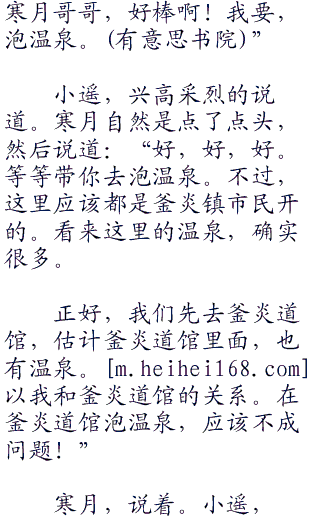 寒月哥哥，好棒啊！我要，
泡温泉。(有意思书院)”
小遥，兴高采烈的说
道。寒月自然是点了点头，
然后说道：“好，好，好。
等等带你去泡温泉。不过，
这里应该都是釜炎镇市民开
的。看来这里的温泉，确实
很多。
正好，我们先去釜炎道
馆，估计釜炎道馆里面，也
有温泉。[m.heihei168.com]
以我和釜炎道馆的关系。在
釜炎道馆泡温泉，应该不成
问题！”
寒月，说着。小遥，